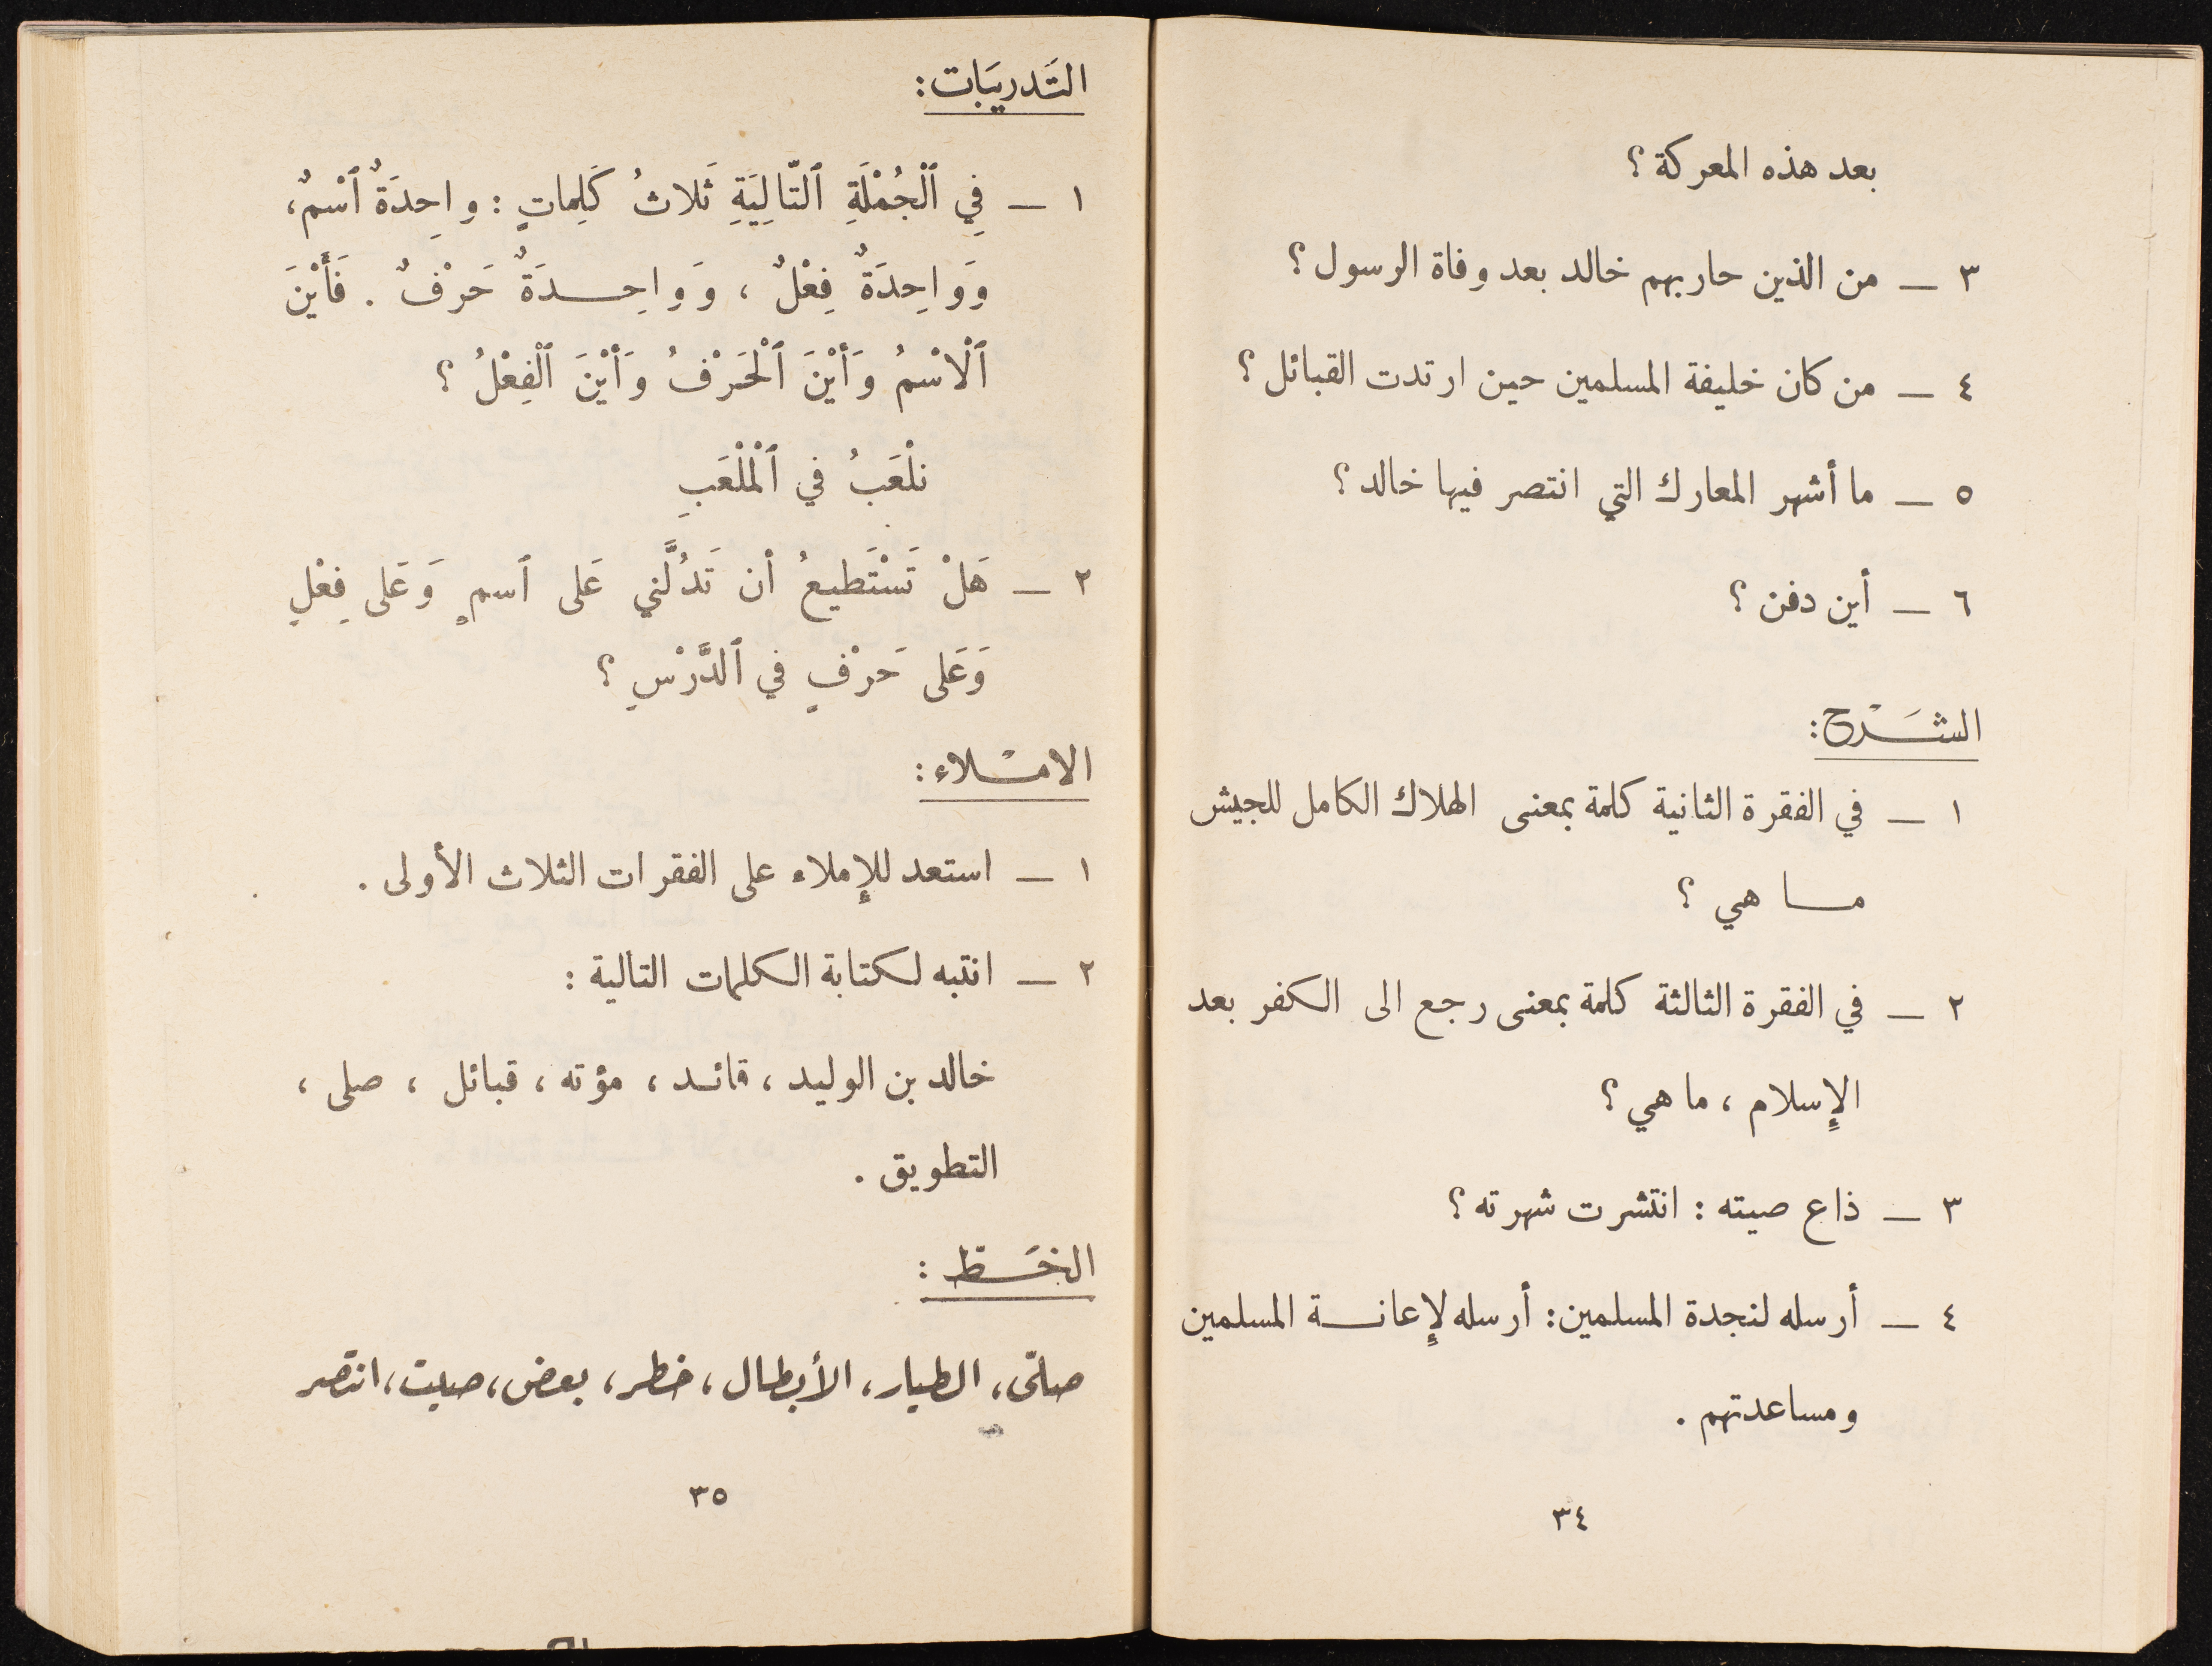 بعد هذه المعركة ؟
٣ — من الذين حاربهم خالد بعد وفاة الرسول ؟
٤ — من كان خليفة المسلمين حين ارتدت القبائل ؟
٥ — ما أشهر المعارك التي انتصر فيها خالد ؟
٦ — أين دفن ؟
الشَّرْح :
١ — في الفقرة الثانية كلمة بمعنى الهلاك الكامل للجيش
مـا هي ؟
٢ — في الفقرة الثالثة كلمة بمعنى رجع الى الكفر بعد
الإسلام ، ما هي ؟
٣ — ذاع صيته : انتشرت شهرته ؟
٤ — أرسله لنجدة المسلمين : أرسله لإعانـة المسلمين
ومساعدتهم .
٣٤
التَدريَبات :
١ — فِي ٱلْجُمْلَةِ ٱلتّالِيَةِ ثَلاثُ كَلِماتٍ : واحِدَةٌ ٱسْمٌ ،
وَواحِدَةٌ فِعْلٌ ، وَواحِـدَةٌ حَرْفٌ . فَأَيْنَ
ٱلْاسْمُ وَأَيْنَ ٱلْحَرْفُ وَأَيْنَ ٱلْفِعْلُ ؟
نلْعَبُ في ٱلْمَلْعَبِ
٢ — هَلْ تَسْتَطيعُ أن تَدُلَّني عَلى ٱسمٍ وَعَلى فِعْلٍ
وَعَلى حَرْفٍ في ٱلدَّرْسِ ؟
الامـْلاء :
١ — استعد للإملاء على الفقرات الثلاث الأولى .
٢ — انتبه لكتابة الكلمات التالية :
خالد بن الوليد ، قائـد ، مؤته ، قبائل ، صلى ،
التطويق .
الخَـط :
صلّى ، الطيار ، الأبطال ، خطر ، بعض ، صيت ، انتصر
٣٥